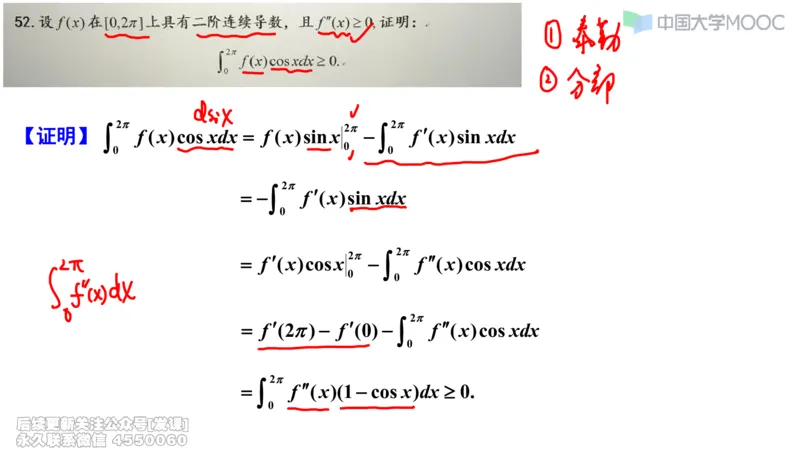 52. 设 f(x) 在 [0,2π] 上具有二阶连续导数，且 f″(x) ≥ 0, 证明：
∫₀^{2π} f(x)cos xdx ≥ 0.
中国大学MOOC
① 泰勒
② 分部
dsinx
【证明】 ∫₀^{2π} f(x)cos xdx = f(x)sin x|₀^{2π} − ∫₀^{2π} f′(x)sin xdx
= −∫₀^{2π} f′(x)sin xdx
= f′(x)cos x|₀^{2π} − ∫₀^{2π} f″(x)cos xdx
∫₀^{2π} f″(x)dx
= f′(2π) − f′(0) − ∫₀^{2π} f″(x)cos xdx
= ∫₀^{2π} f″(x)(1 − cos x)dx ≥ 0.
后续更新关注公众号[发课]
永久联系微信 4550060